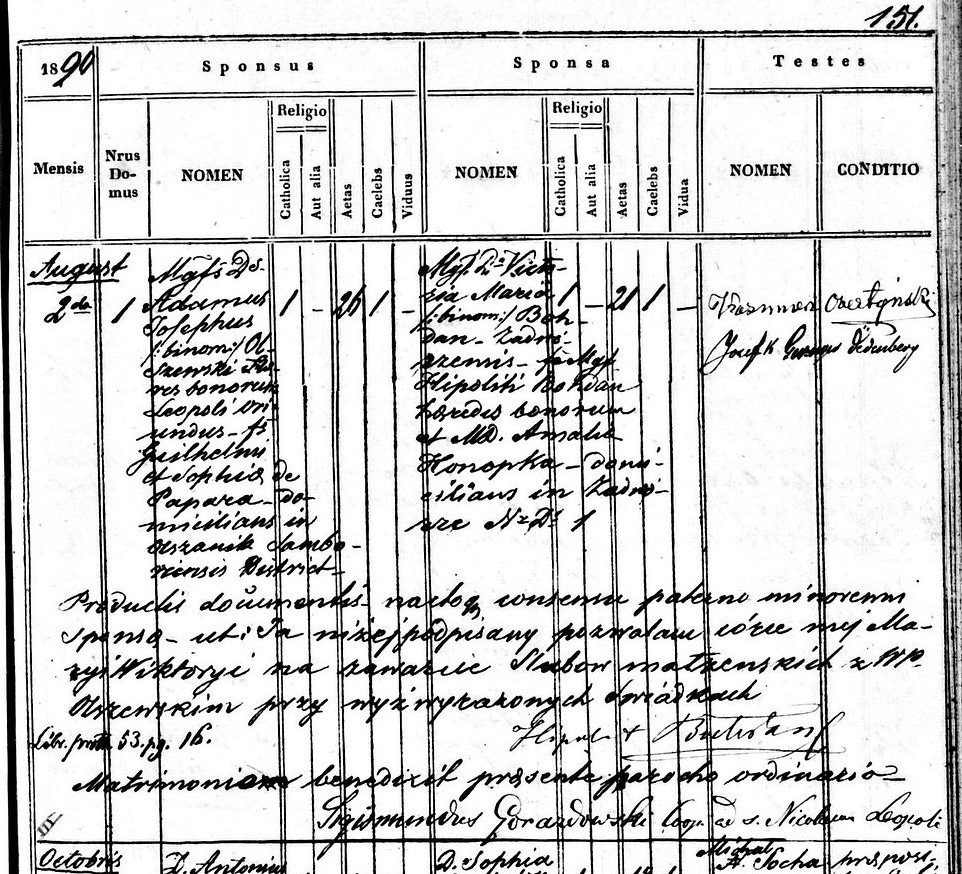 151.
1890 Sponsus Sponsa Testes
Mensis Nrus Do- mus NOMEN Religio Catholica Aut alia Aetas Caelebs Viduus NOMEN Religio Catholica Aut alia Aetas Caelebs Vidua NOMEN CONDITIO
August
2da 1
Adamus
Josephus
/:binom:/ Ol-
szewski Hae-
res bonorum
Leopoli ori-
undus - fs
Guilhelmi
et Sophia de
Papara - do-
micilians in
Olszanik Sambo-
riensis District
1 - 26 1 -
Mgf. Da Victo-
ria Maria
/:binom:/ Boh-
dan - Zadwó-
rzensis - fa Mgf
Hipoliti Bohdan
haeredis bonorum
et MD. Amalia
Konopka - domi-
cilians in Zadwó-
rze Nr Ds 1
1 - 21 1 -
Kasimierz Obertyński
Josef
Productis documentis - nactoq consensu paterno minorenni
Sponsa - ut: Ja niżej podpisany pozwalam córce mej Ma-
ryi Wiktoryi na zawarcie Ślubów małżenskich z WP.
Olszewskim przy wyżwyrażonych Świadkach
Libr. 53. pg. 16. Hipolit Bohdan
Matrimonium benedixit praesente parocho ordinario
Sigismundus Gorazdowski Coop. ad s. Nicolaum Leopoli
Octobris D. Antonius D. Sophia Michał Socha